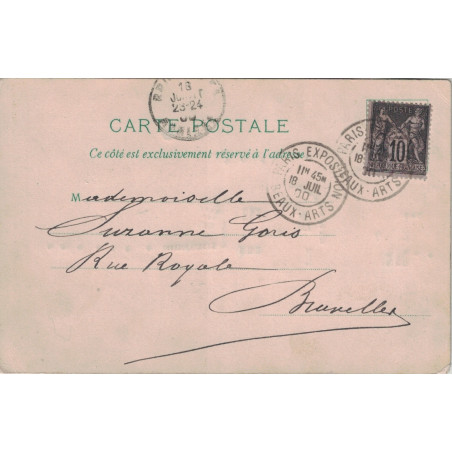 18
JUIL
23-24
CARTE POSTALE
Ce côté est exclusivement réservé à l'adresse
PARIS EXPOSITION
11M 45M
18 JUIL
00
BEAUX-ARTS
PARIS
18
EAUX-ARTS
POSTE
10
Mademoiselle
Suzanne Goris
Rue Royale
Bruxelles